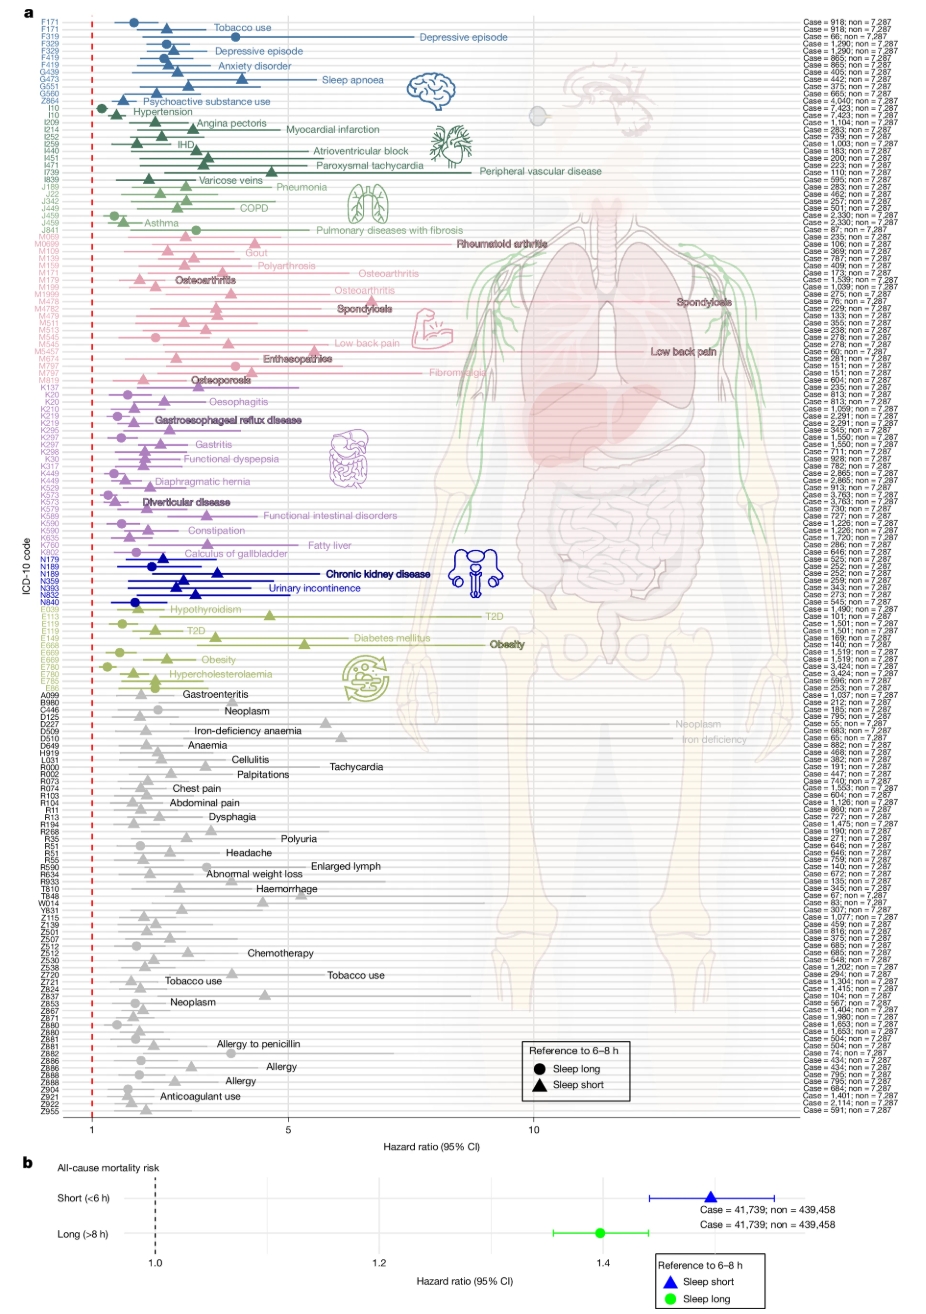 a
F171 Case = 918; non = 7,287
F171 Tobacco use Case = 918; non = 7,287
F319 Depressive episode Case = 66; non = 7,287
F329 Case = 1,290; non = 7,287
F329 Depressive episode Case = 1,290; non = 7,287
F419 Case = 865; non = 7,287
F419 Anxiety disorder Case = 865; non = 7,287
G439 Case = 405; non = 7,287
G473 Sleep apnoea Case = 442; non = 7,287
G551 Case = 375; non = 7,287
G560 Case = 665; non = 7,287
Z864 Psychoactive substance use Case = 4,040; non = 7,287
I10 Case = 7,423; non = 7,287
I10 Hypertension Case = 7,423; non = 7,287
I209 Angina pectoris Case = 1,104; non = 7,287
I214 Myocardial infarction Case = 283; non = 7,287
I252 Case = 739; non = 7,287
I259 IHD Case = 1,003; non = 7,287
I440 Atrioventricular block Case = 183; non = 7,287
I451 Case = 200; non = 7,287
I471 Paroxysmal tachycardia Case = 223; non = 7,287
I739 Peripheral vascular disease Case = 110; non = 7,287
I839 Varicose veins Case = 595; non = 7,287
J189 Pneumonia Case = 283; non = 7,287
J22 Case = 462; non = 7,287
J342 Case = 257; non = 7,287
J449 COPD Case = 501; non = 7,287
J459 Case = 2,330; non = 7,287
J459 Asthma Case = 2,330; non = 7,287
J841 Pulmonary diseases with fibrosis Case = 87; non = 7,287
Case = 235; non = 7,287
M0699 Rheumatoid arthritis Case = 106; non = 7,287
M109 Gout Case = 369; non = 7,287
M139 Case = 787; non = 7,287
M159 Polyarthrosis Case = 409; non = 7,287
M171 Osteoarthritis Case = 173; non = 7,287
M179 Osteoarthritis Case = 1,539; non = 7,287
M199 Case = 1,039; non = 7,287
M1999 Osteoarthritis Case = 275; non = 7,287
M478 Spondylosis Case = 76; non = 7,287
M4782 Spondylosis Case = 229; non = 7,287
M479 Case = 133; non = 7,287
M511 Case = 355; non = 7,287
M513 Case = 238; non = 7,287
M545 Case = 278; non = 7,287
M545 Low back pain Case = 278; non = 7,287
M5457 Low back pain Case = 60; non = 7,287
M674 Enthesopathies Case = 281; non = 7,287
M797 Case = 151; non = 7,287
M797 Fibromyalgia Case = 151; non = 7,287
M819 Osteoporosis Case = 604; non = 7,287
K137 Case = 235; non = 7,287
K20 Case = 813; non = 7,287
K20 Oesophagitis Case = 813; non = 7,287
K210 Case = 1,059; non = 7,287
K219 Case = 2,291; non = 7,287
K219 Gastroesophageal reflux disease Case = 2,291; non = 7,287
K295 Case = 345; non = 7,287
K297 Case = 1,550; non = 7,287
K297 Gastritis Case = 1,550; non = 7,287
K298 Case = 711; non = 7,287
K30 Functional dyspepsia Case = 928; non = 7,287
K317 Case = 782; non = 7,287
K449 Case = 2,865; non = 7,287
K449 Diaphragmatic hernia Case = 2,865; non = 7,287
K529 Case = 913; non = 7,287
K573 Case = 3,763; non = 7,287
K573 Diverticular disease Case = 3,763; non = 7,287
K579 Case = 730; non = 7,287
K589 Functional intestinal disorders Case = 727; non = 7,287
K590 Case = 1,226; non = 7,287
K590 Constipation Case = 1,226; non = 7,287
K635 Case = 1,720; non = 7,287
K760 Fatty liver Case = 286; non = 7,287
K802 Calculus of gallbladder Case = 646; non = 7,287
N179 Case = 525; non = 7,287
N189 Case = 252; non = 7,287
N189 Chronic kidney disease Case = 252; non = 7,287
N359 Case = 259; non = 7,287
N393 Urinary incontinence Case = 343; non = 7,287
N832 Case = 273; non = 7,287
N840 Case = 545; non = 7,287
E039 Hypothyroidism Case = 1,490; non = 7,287
E113 T2D Case = 101; non = 7,287
E119 Case = 1,501; non = 7,287
E119 T2D Case = 1,501; non = 7,287
E149 Diabetes mellitus Case = 169; non = 7,287
E668 Obesity Case = 140; non = 7,287
E669 Case = 1,519; non = 7,287
E669 Obesity Case = 1,519; non = 7,287
E780 Case = 3,424; non = 7,287
E780 Hypercholesterolaemia Case = 3,424; non = 7,287
E785 Case = 596; non = 7,287
E86 Case = 253; non = 7,287
A099 Gastroenteritis Case = 1,037; non = 7,287
B980 Case = 212; non = 7,287
C446 Neoplasm Case = 185; non = 7,287
D125 Case = 795; non = 7,287
D227 Neoplasm Case = 55; non = 7,287
D509 Iron-deficiency anaemia Case = 683; non = 7,287
D510 Iron deficiency Case = 65; non = 7,287
D649 Anaemia Case = 882; non = 7,287
H919 Case = 468; non = 7,287
L031 Cellulitis Case = 382; non = 7,287
R000 Tachycardia Case = 191; non = 7,287
R002 Palpitations Case = 447; non = 7,287
R073 Case = 740; non = 7,287
R074 Chest pain Case = 1,553; non = 7,287
R103 Case = 604; non = 7,287
R104 Abdominal pain Case = 1,126; non = 7,287
R11 Case = 860; non = 7,287
R13 Dysphagia Case = 727; non = 7,287
R194 Case = 1,475; non = 7,287
R268 Case = 190; non = 7,287
R35 Polyuria Case = 271; non = 7,287
R51 Case = 646; non = 7,287
R51 Headache Case = 646; non = 7,287
R55 Case = 759; non = 7,287
R590 Enlarged lymph Case = 140; non = 7,287
R634 Abnormal weight loss Case = 672; non = 7,287
R933 Case = 135; non = 7,287
T810 Haemorrhage Case = 345; non = 7,287
T848 Case = 67; non = 7,287
W014 Case = 83; non = 7,287
Y831 Case = 307; non = 7,287
Z115 Case = 1,077; non = 7,287
Z139 Case = 459; non = 7,287
Z501 Case = 816; non = 7,287
Z507 Case = 375; non = 7,287
Z512 Case = 685; non = 7,287
Z512 Chemotherapy Case = 685; non = 7,287
Z530 Case = 548; non = 7,287
Z538 Case = 1,202; non = 7,287
Z720 Tobacco use Case = 294; non = 7,287
Z721 Tobacco use Case = 1,304; non = 7,287
Z824 Case = 1,415; non = 7,287
Z837 Case = 104; non = 7,287
Z853 Neoplasm Case = 567; non = 7,287
Z867 Case = 1,404; non = 7,287
Z871 Case = 1,980; non = 7,287
Z880 Case = 1,653; non = 7,287
Z880 Case = 1,653; non = 7,287
Z881 Case = 504; non = 7,287
Z881 Allergy to penicillin Case = 504; non = 7,287
Z882 Case = 74; non = 7,287
Z886 Case = 434; non = 7,287
Z886 Allergy Case = 434; non = 7,287
Z888 Case = 795; non = 7,287
Z888 Allergy Case = 795; non = 7,287
Z904 Case = 684; non = 7,287
Z921 Anticoagulant use Case = 1,401; non = 7,287
Z922 Case = 2,114; non = 7,287
Z955 Case = 591; non = 7,287
ICD-10 code
Reference to 6–8 h
Sleep long
Sleep short
1 5 10
Hazard ratio (95% CI)
b
All-cause mortality risk
Short (<6 h)
Case = 41,739; non = 439,458
Case = 41,739; non = 439,458
Long (>8 h)
1.0 1.2 1.4
Hazard ratio (95% CI)
Reference to 6–8 h
Sleep short
Sleep long